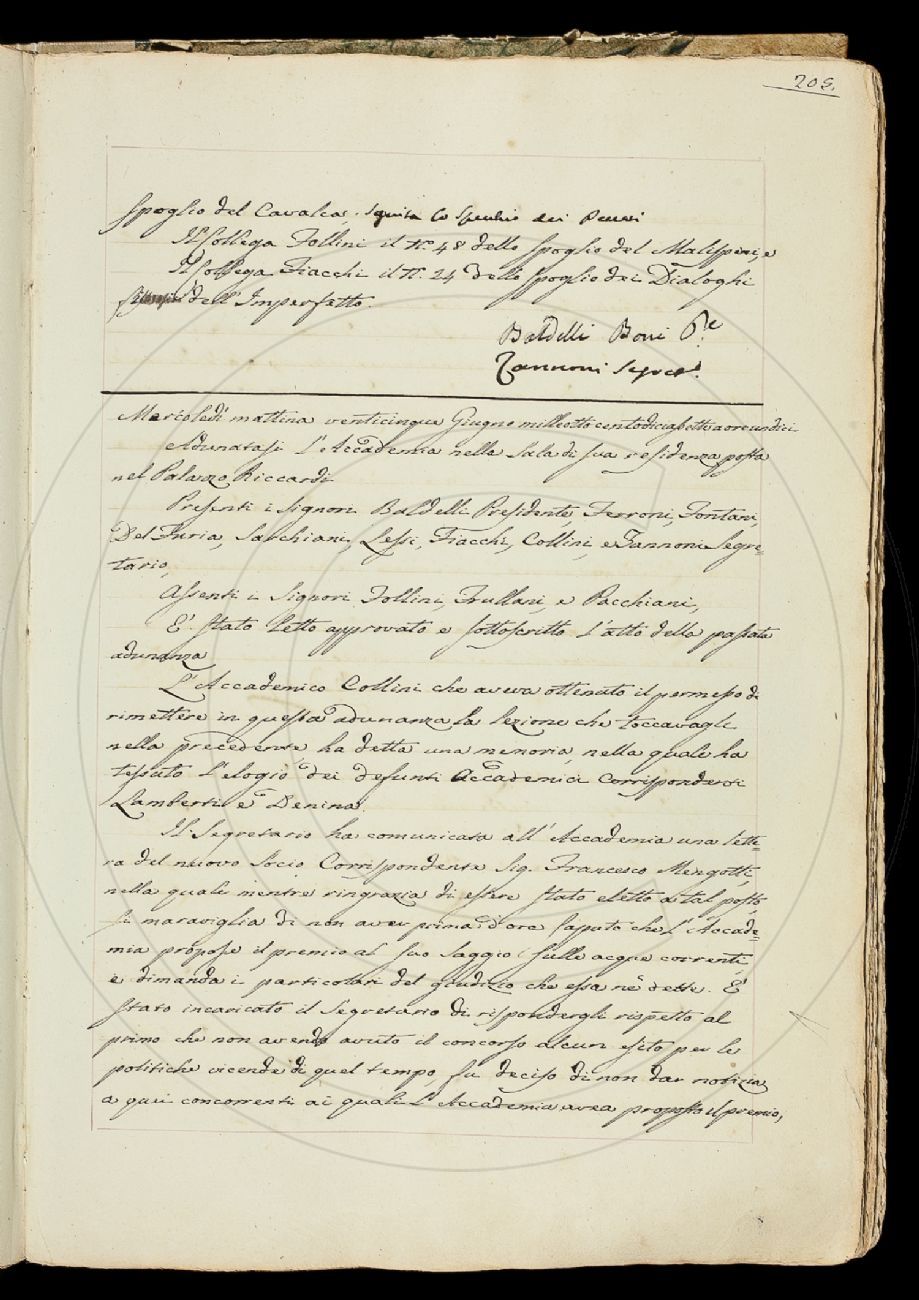 205.
Spoglio del Cavalca, seguita lo Specchio dei Peccati
Il Collega Follini il N.° 48 dello Spoglio del Malespini, e
Il Collega Fiacchi il N.° 24 dello Spoglio dei Dialoghi
dell'Imperfetto.
Baldelli Boni P.e
Zannoni Segret.°
Mercoledì mattina venticinque Giugno milleottocentodiciassette a ore undici
Adunatasi l'Accademia nella Sala di sua residenza posta
nel Palazzo Riccardi
Presenti i Signori Baldelli Presidente, Ferroni, Fontani,
Del Furia, Sarchiani, Lessi, Fiacchi, Collini, e Zannoni Segre=
tario,
Assenti i Signori Follini, Frullani, e Pacchiani,
E' stato letto approvato e sottoscritto l'atto della passata
adunanza
L'Accademico Collini che aveva ottenuto il permesso di
rimettere in questa adunanza la lezione che toccavagli
nella precedente ha detta una memoria, nella quale ha
tessuto l'elogio dei defunti Accademici Corrispondenti
Lamberti e Denina.
Il Segretario ha comunicata all'Accademia una lette=
ra del nuovo Socio Corrispondente Sig. Francesco Mengotti,
nella quale mentre ringrazia di essere stato eletto a tal posto,
si maraviglia di non aver prima d'ora saputo che l'Accade=
mia propose il premio al suo Saggio sulle acque correnti,
e dimanda i particolari del giudizio che essa ne dette. E'
stato incaricato il Segretario di rispondergli rispetto al
primo che non avendo avuto il concorso alcun esito per le
politiche vicende di quel tempo, fu deciso di non dar notizia
a quei concorrenti ai quali l'Accademia avea proposto il premio,